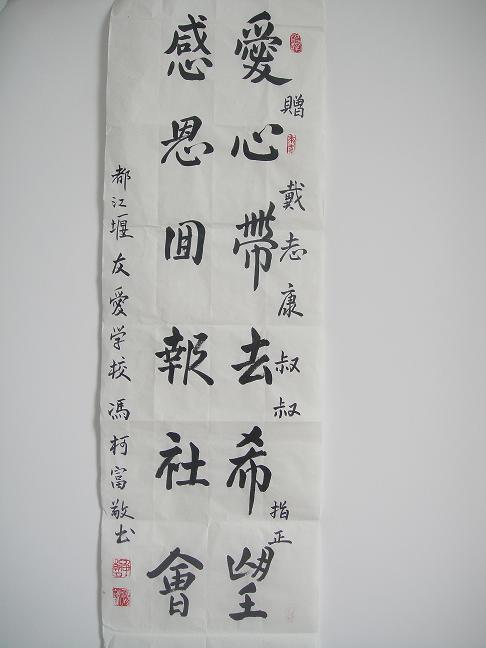 贈戴志康叔叔指正
愛心帶去希望
感恩囬報社會
都江堰友愛学校馮柯富敬书